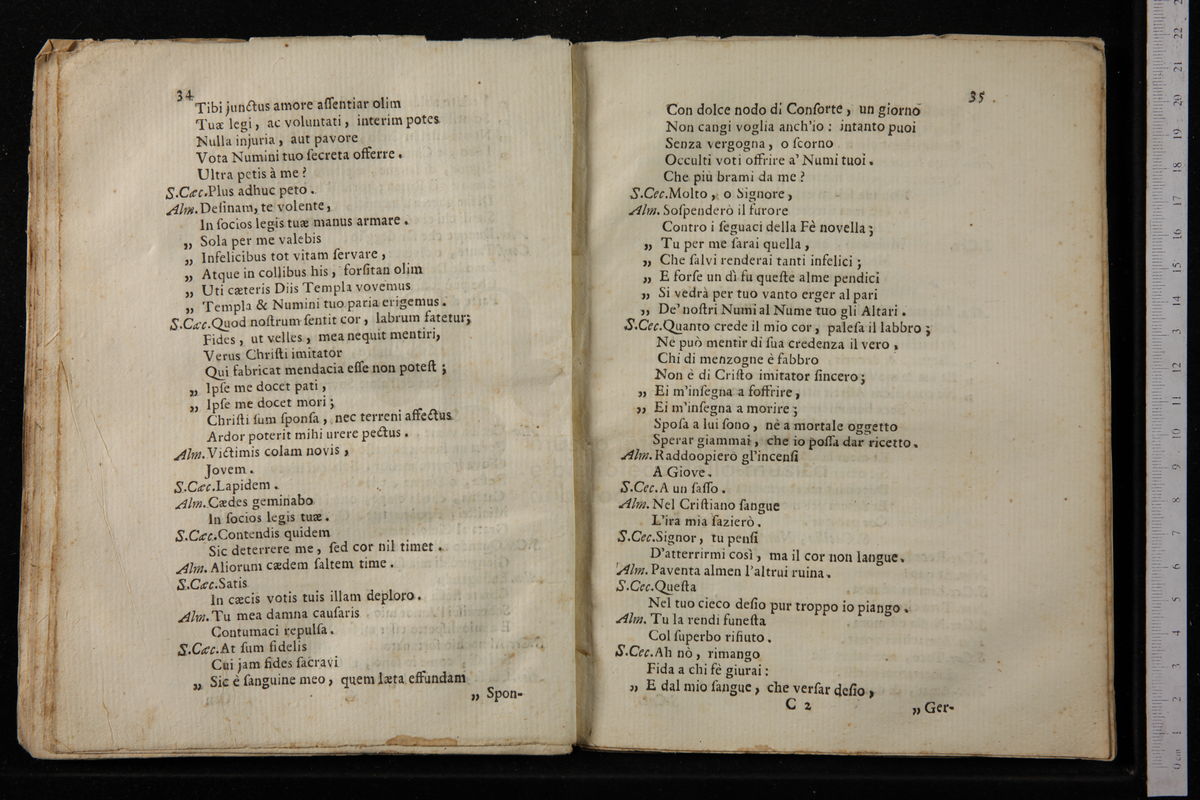 34
Tibi junctus amore aſſentiar olim
Tuæ legi, ac voluntati, interim potes
Nulla injuria, aut pavore
Vota Numini tuo ſecreta offerre.
Ultra petis à me?
S.Cæc.Plus adhuc peto.
Alm.Deſinam, te volente,
In ſocios legis tuæ manus armare.
„ Sola per me valebis
„ Infelicibus tot vitam ſervare,
„ Atque in collibus his, forſitan olim
„ Uti cæteris Diis Templa vovemus
„ Templa & Numini tuo paria erigemus.
S.Cæc.Quod noſtrum ſentit cor, labrum fatetur;
Fides, ut velles, mea nequit mentiri,
Verus Chriſti imitator
Qui fabricat mendacia eſſe non poteſt;
„ Ipſe me docet pati,
„ Ipſe me docet mori;
Chriſti ſum ſponſa, nec terreni affectus
Ardor poterit mihi urere pectus.
Alm.Victimis colam novis,
Jovem.
S.Cæc.Lapidem.
Alm.Cædes geminabo
In ſocios legis tuæ.
S.Cæc.Contendis quidem
Sic deterrere me, ſed cor nil timet.
Alm. Aliorum cædem ſaltem time.
S.Cæc.Satis
In cæcis votis tuis illam deploro.
Alm.Tu mea damna cauſaris
Contumaci repulſa.
S.Cæc.At ſum fidelis
Cui jam fides ſacravi
„ Sic è ſanguine meo, quem læta effundam
„ Spon-
35.
Con dolce nodo di Conſorte, un giorno
Non cangi voglia anch'io: intanto puoi
Senza vergogna, o ſcorno
Occulti voti offrire a' Numi tuoi.
Che più brami da me?
S.Cec.Molto, o Signore,
Alm. Soſpenderò il furore
Contro i ſeguaci della Fè novella;
„ Tu per me ſarai quella,
„ Che ſalvi renderai tanti infelici;
„ E forſe un dì ſu queſte alme pendici
„ Si vedrà per tuo vanto erger al pari
„ De' noſtri Numi al Nume tuo gli Altari.
S.Cec.Quanto crede il mio cor, paleſa il labbro;
Ne può mentir di ſua credenza il vero,
Chi di menzogne è fabbro
Non è di Criſto imitator ſincero;
„ Ei m'inſegna a ſoffrire,
„ Ei m'inſegna a morire;
Spoſa a lui ſono, nè a mortale oggetto
Sperar giammai, che io poſſa dar ricetto.
Alm.Raddoopierò gl'incenſi
A Giove.
S.Cec.A un ſaſſo.
Alm.Nel Criſtiano ſangue
L'ira mia ſazierò.
S.Cec.Signor, tu penſi
D'atterrirmi così, ma il cor non langue.
Alm.Paventa almen l'altrui ruina.
S.Cec.Queſta
Nel tuo cieco deſio pur troppo io piango.
Alm. Tu la rendi funeſta
Col ſuperbo rifiuto.
S.Cec.Ah nò, rimango
Fida a chi fè giurai:
„ E dal mio ſangue, che verſar deſio,
C 2
„ Ger-